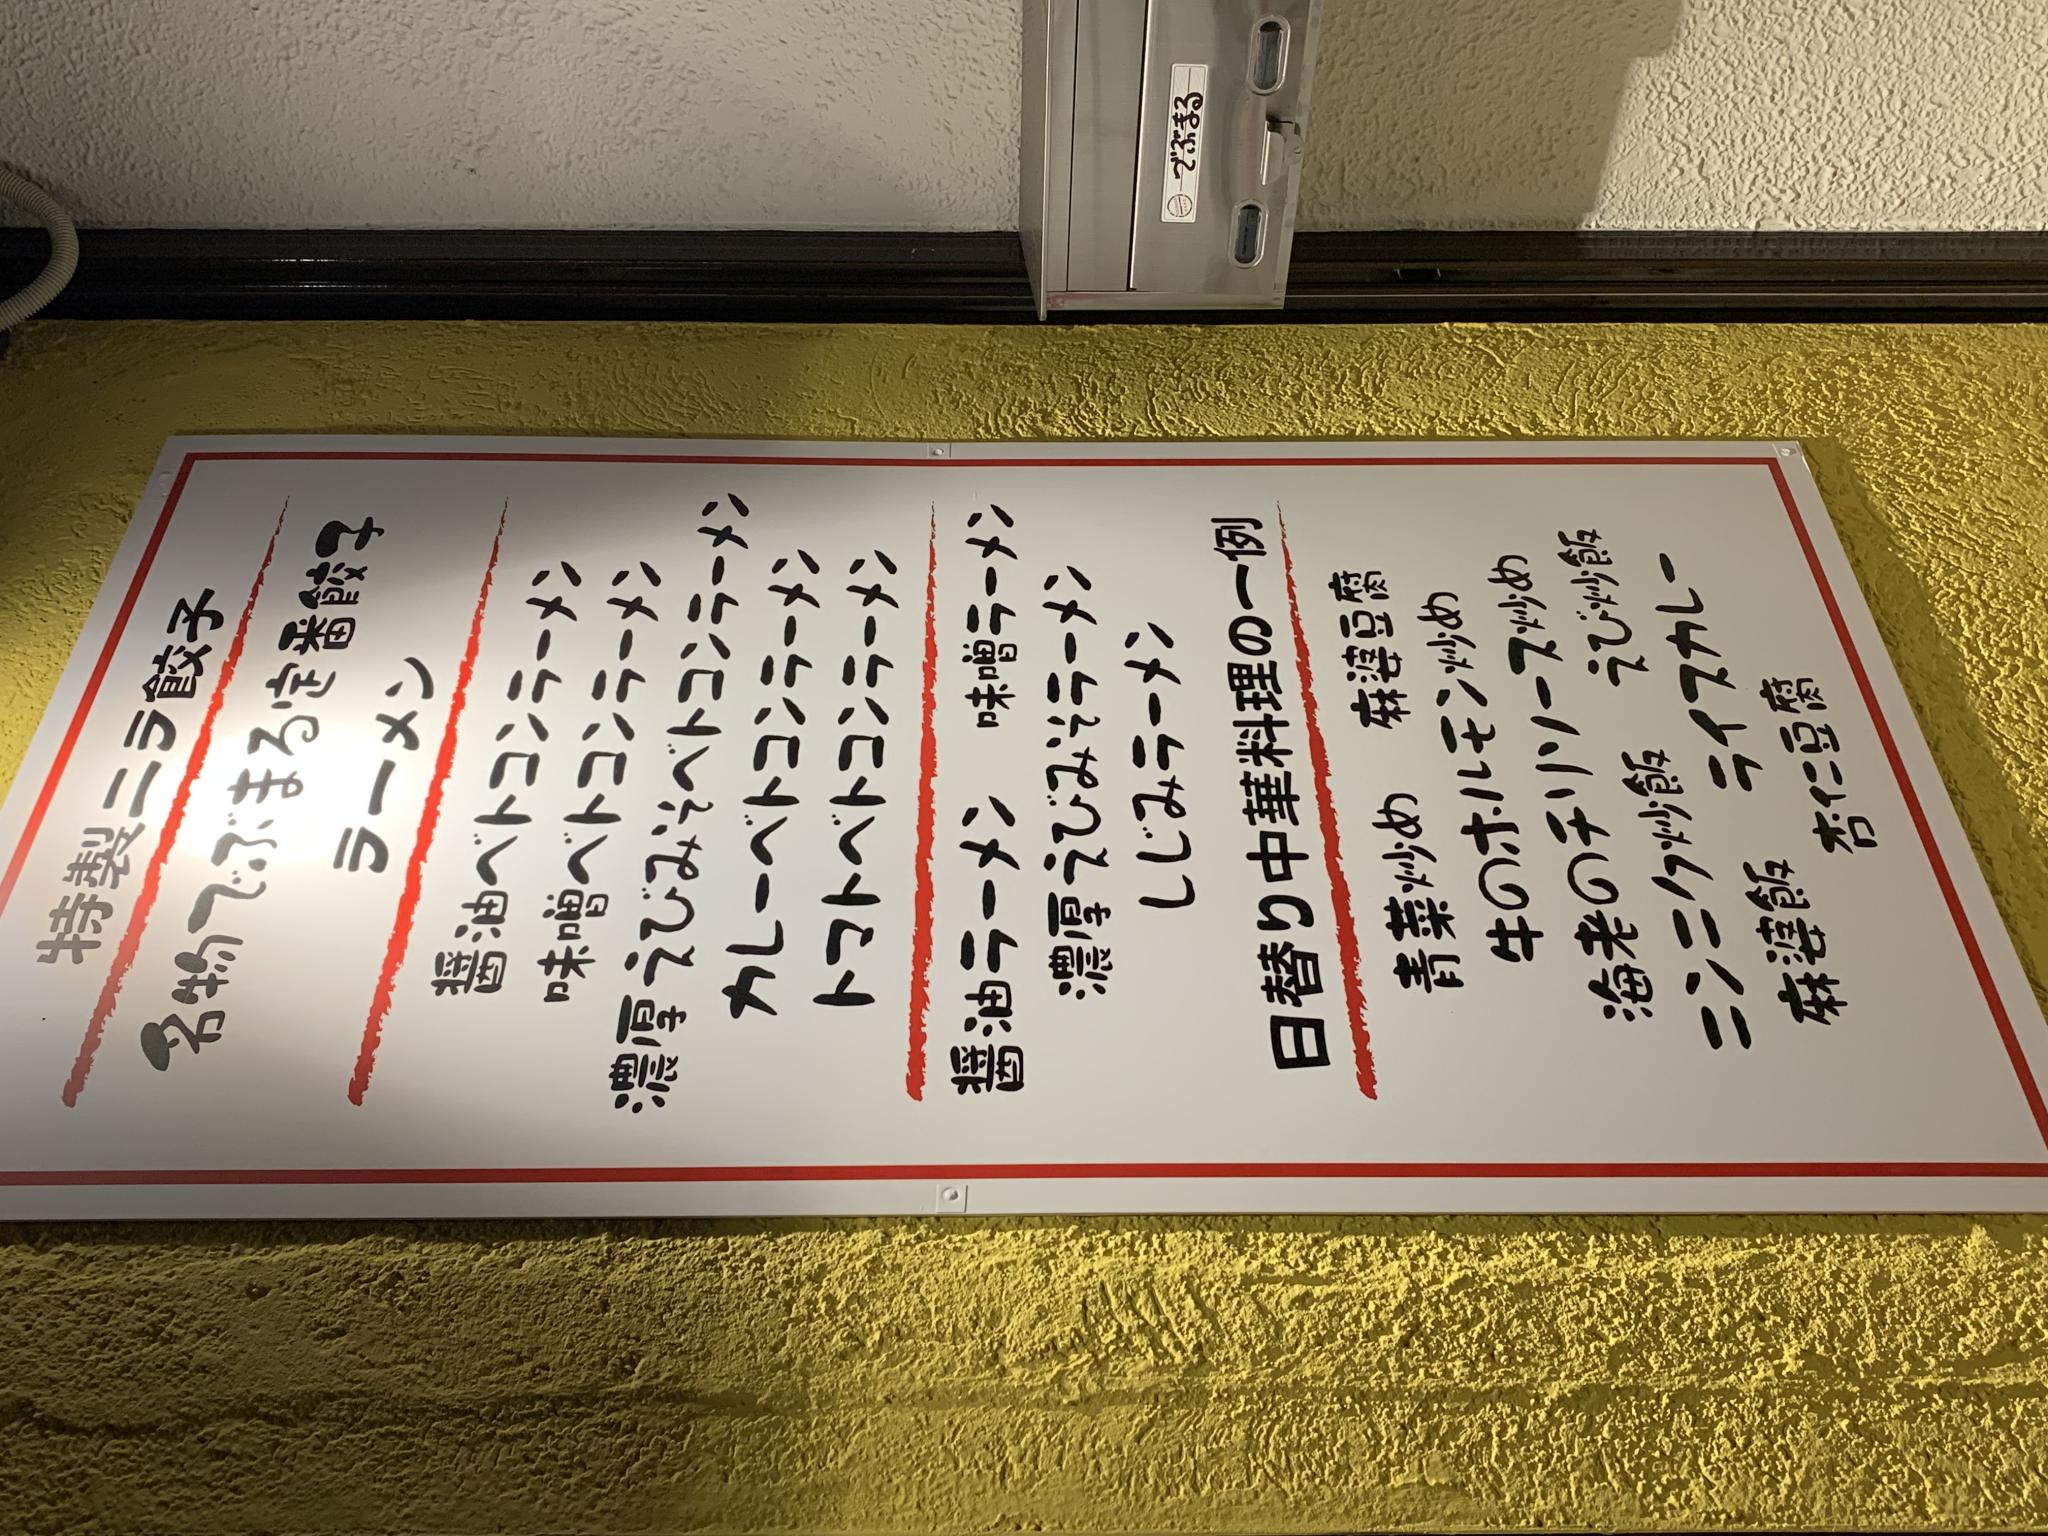 特製ニラ餃子
名物でぶまる定番餃子
ラーメン
醤油ベトコンラーメン
味噌ベトコンラーメン
濃厚えびみそベトコンラーメン
カレーベトコンラーメン
トマトベトコンラーメン
醤油ラーメン 味噌ラーメン
濃厚えびみそラーメン
しじみラーメン
日替り中華料理の一例
青菜炒め 麻婆豆腐
牛のホルモン炒め
海老のチリソース炒め
ニンニク炒飯 えび炒飯
麻婆飯 ライスカレー
杏仁豆腐
でぶまる